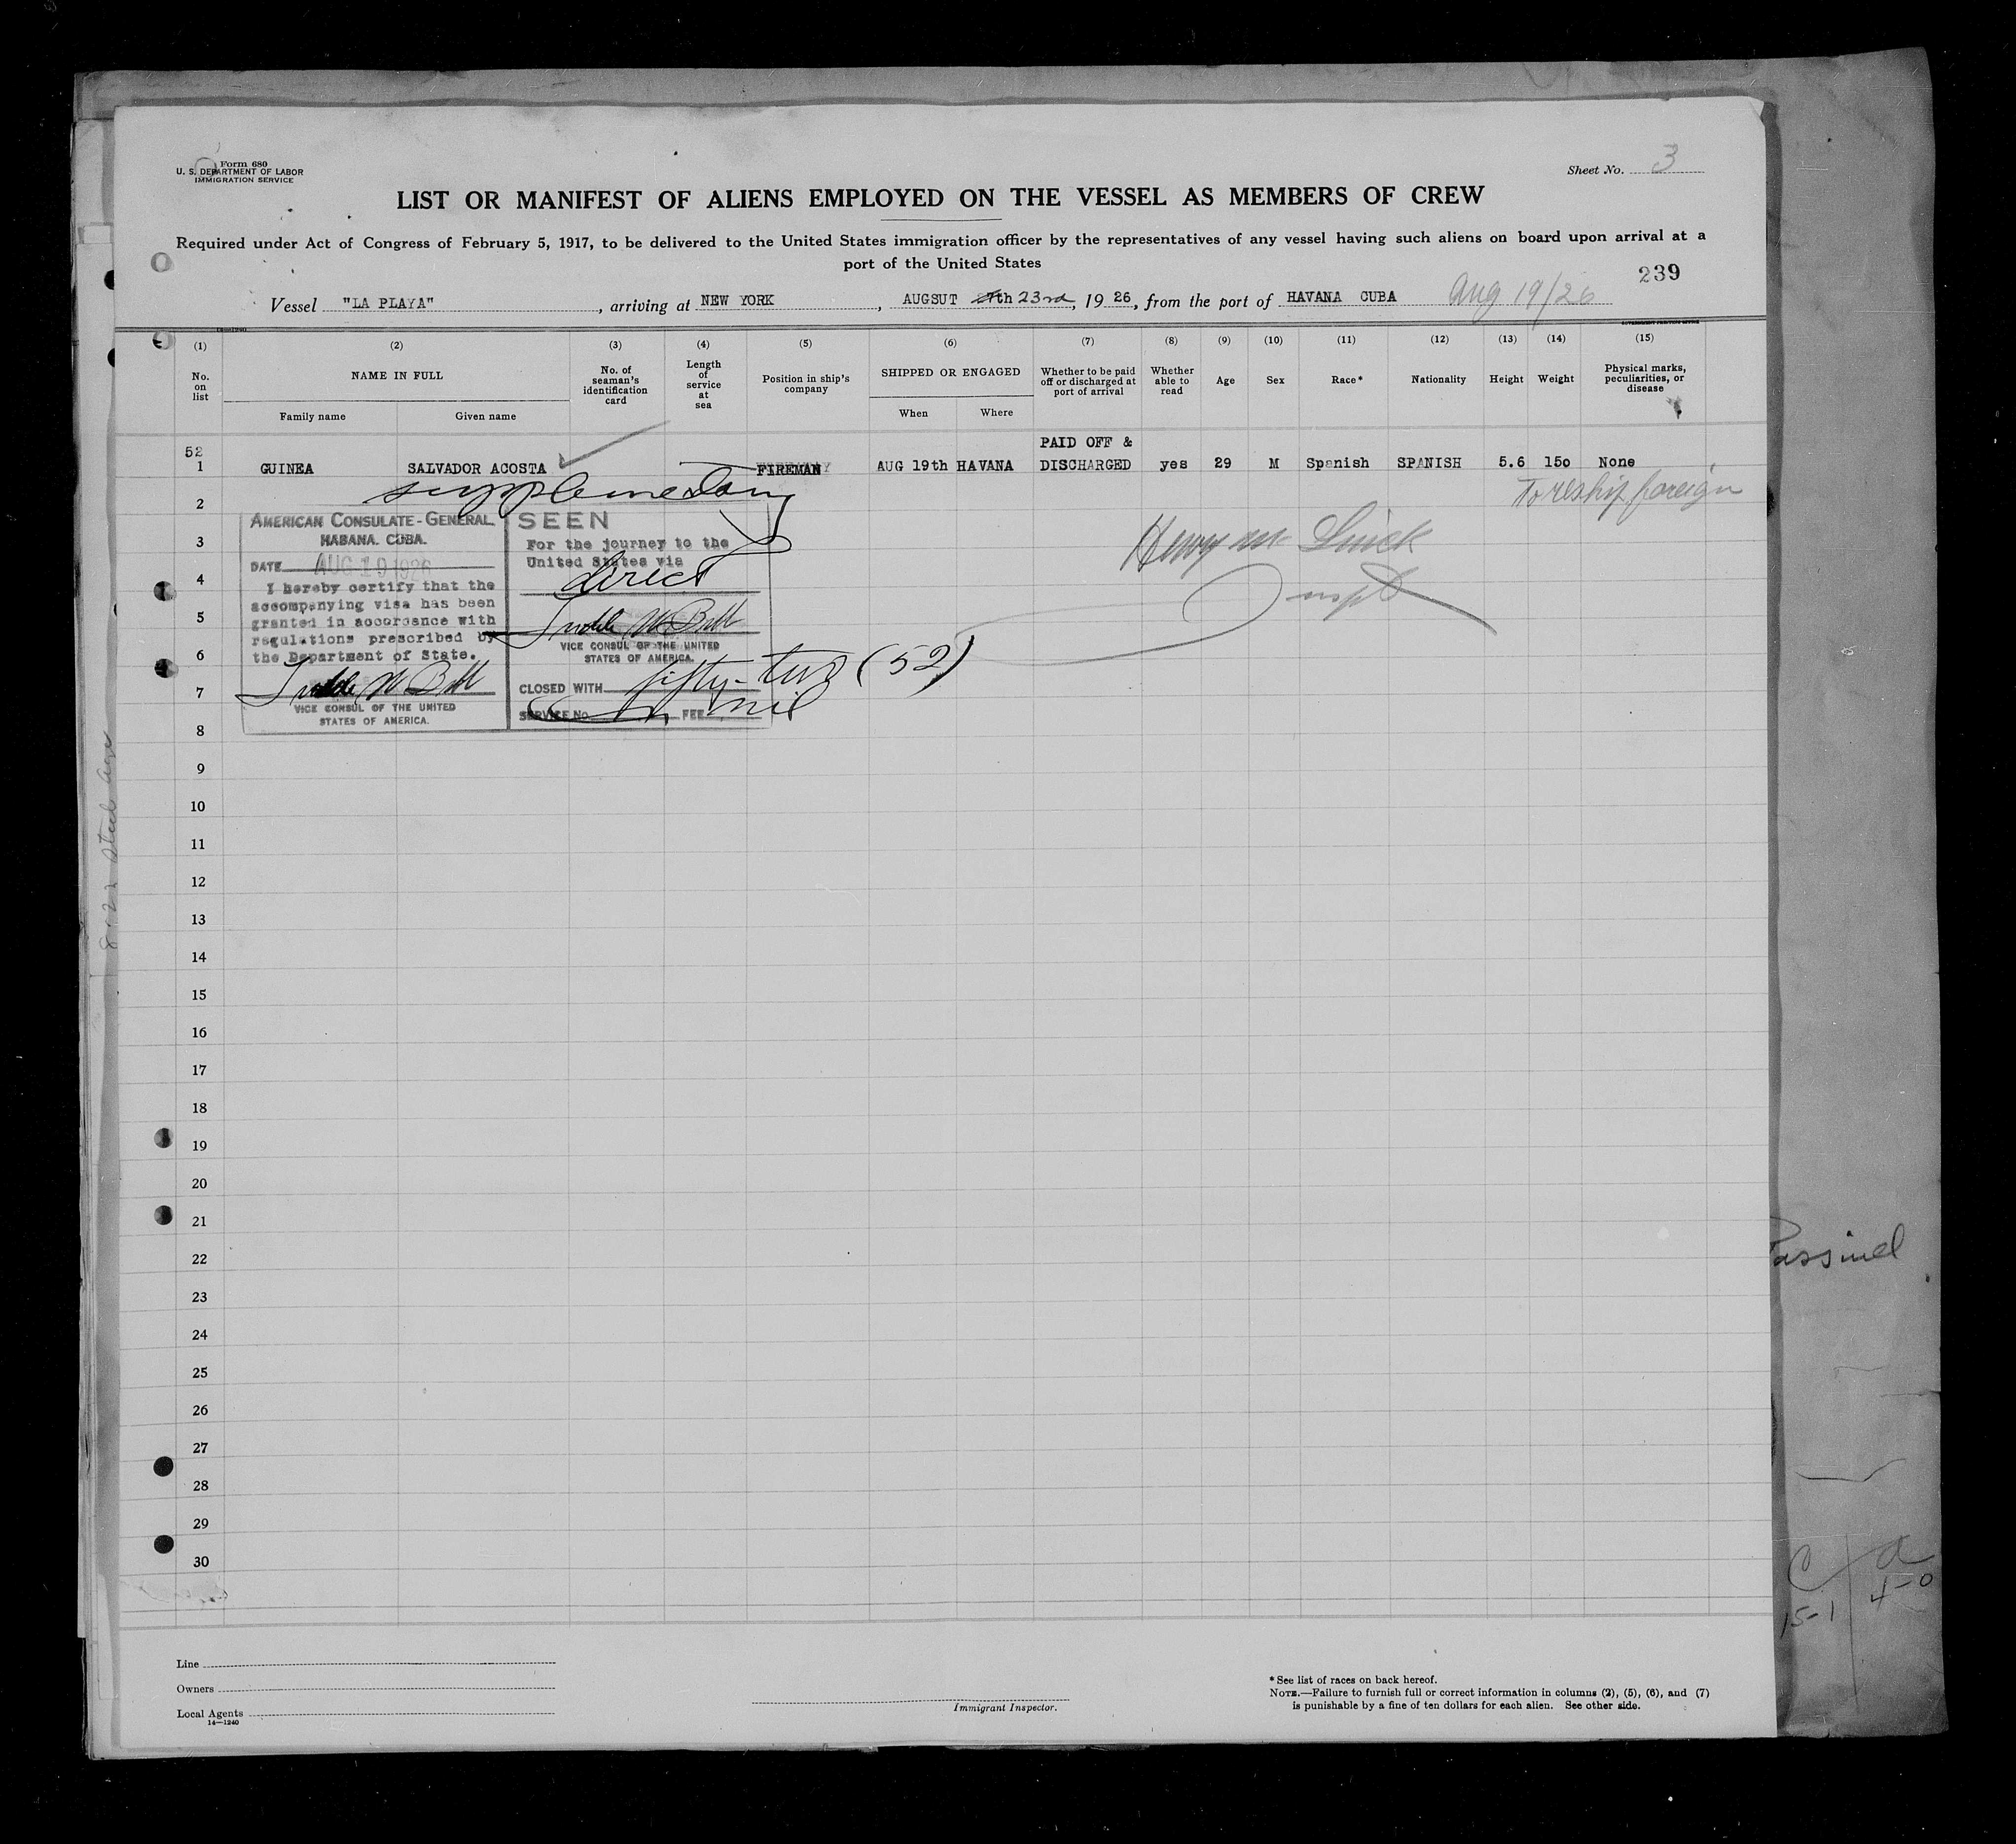 Form 680
U. S. DEPARTMENT OF LABOR
IMMIGRATION SERVICE
Sheet No. 3
LIST OR MANIFEST OF ALIENS EMPLOYED ON THE VESSEL AS MEMBERS OF CREW
Required under Act of Congress of February 5, 1917, to be delivered to the United States immigration officer by the representatives of any vessel having such aliens on board upon arrival at a
port of the United States
239
Vessel "LA PLAYA", arriving at NEW YORK, AUGSUT 23rd, 19 26, from the port of HAVANA CUBA Aug 19/26
(1) (2) (3) (4) (5) (6) (7) (8) (9) (10) (11) (12) (13) (14) (15)
No. on list NAME IN FULL Family name Given name No. of seaman's identification card Length of service at sea Position in ship's company SHIPPED OR ENGAGED When Where Whether to be paid off or discharged at port of arrival Whether able to read Age Sex Race* Nationality Height Weight Physical marks, peculiarities, or disease
52 PAID OFF &
1 GUINEA SALVADOR ACOSTA FIREMAN AUG 19th HAVANA DISCHARGED yes 29 M Spanish SPANISH 5.6 15o None
To reship foreign
supplementary
2
3
4
5
6
7
8
AMERICAN CONSULATE-GENERAL
HABANA. CUBA.
DATE AUG 19 1926
I hereby certify that the
accompanying visa has been
granted in accordance with
regulations prescribed by
the Department of State.
VICE CONSUL OF THE UNITED
STATES OF AMERICA.
SEEN
For the journey to the
United States via
direct
VICE CONSUL OF THE UNITED
STATES OF AMERICA.
CLOSED WITH fifty-two (52)
SERVICE No. FEE nil
Henry
Insp
9
10
11
12
13
14
15
16
17
18
19
20
21
22
23
24
25
26
27
28
29
30
Line
Owners
Local Agents
14—1240
Immigrant Inspector.
* See list of races on back hereof.
NOTE.—Failure to furnish full or correct information in columns (2), (5), (6), and (7)
is punishable by a fine of ten dollars for each alien. See other side.
15-1
4-0